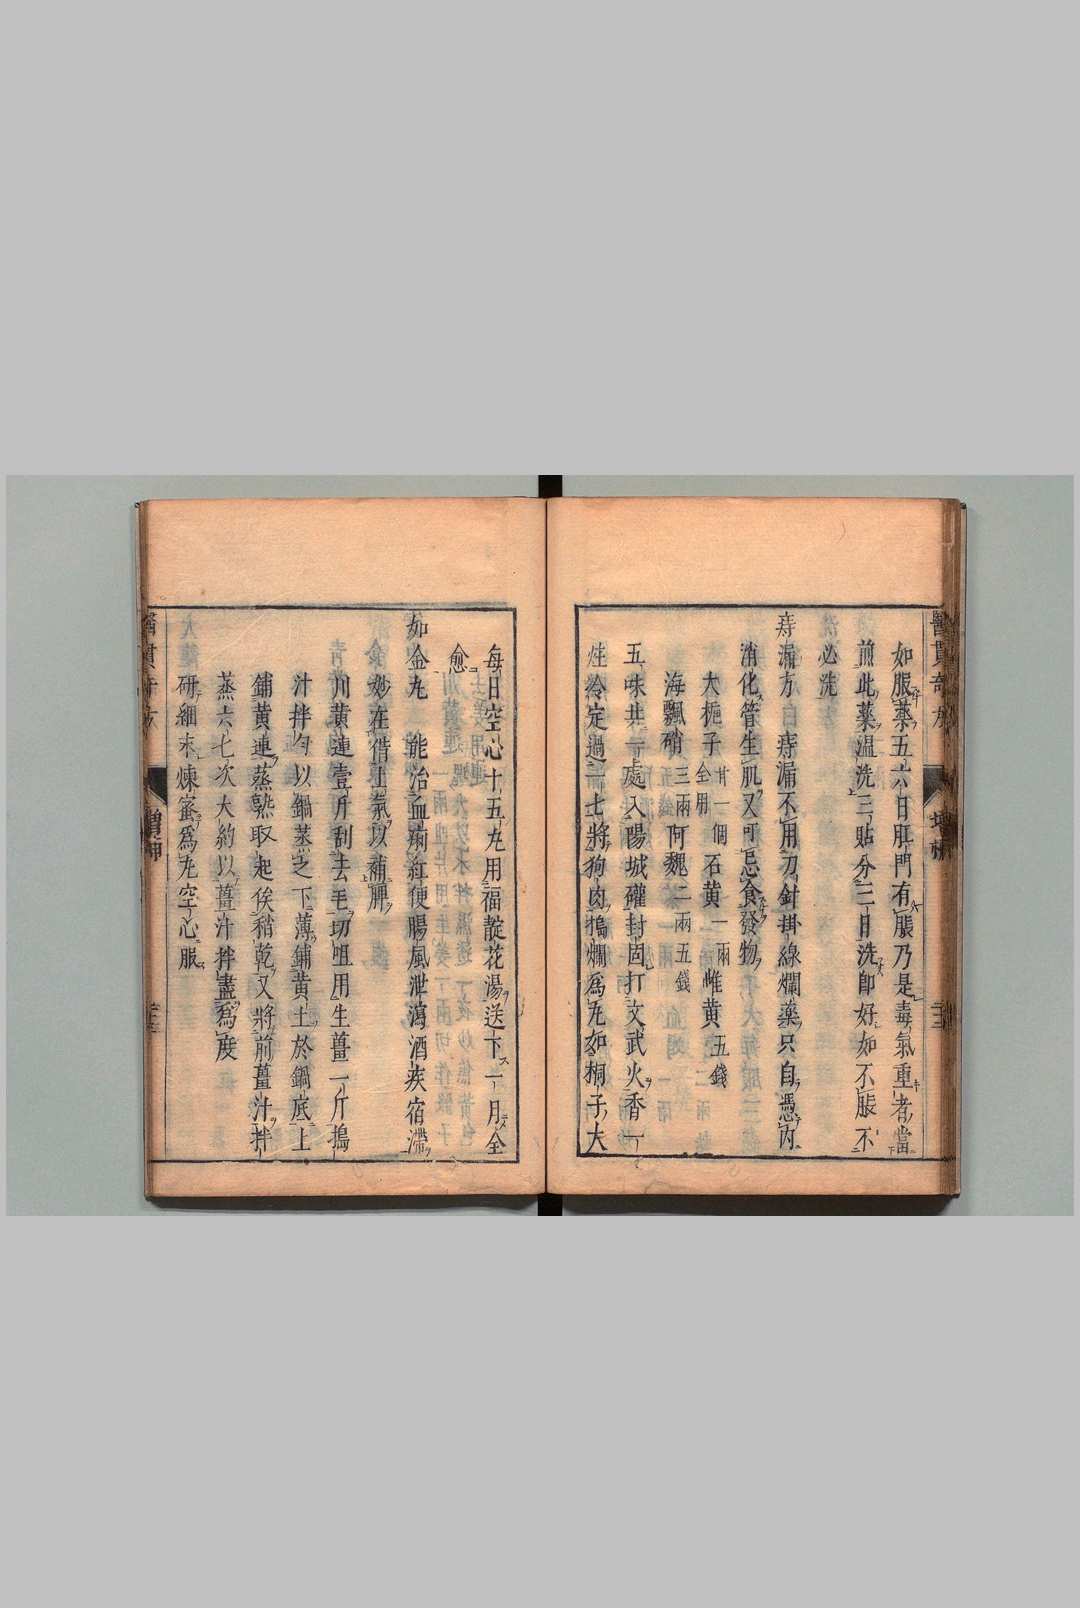 如服藥五六日肛門有脹乃是毒氣重者當
煎此藥温洗三貼分三日洗即好如不脹不
必洗
痔漏方白痔漏不用刀針掛線爛藥只自憑内
消化管生肌又可忌食發物
大梔子廿一個全用 石黄一兩 雌黄五錢
海飄硝三兩 阿魏二兩五錢
五味共一處入陽城礶封固打文武火香一
炷冷定過一七將狗肉搗爛爲丸如桐子大
每日空心十五丸用福靛花湯送下一月全
愈
茹金丸 能治血痢紅便腸風泄瀉酒疾宿滯
妙在借土氣以補脾
川黄連壹斤刮去毛切咀用生薑一斤搗
汁拌匀以鍋蒸之下薄鋪黄土於鍋底上
鋪黄連蒸熟取起俟稍乾又將前薑汁拌
蒸六七次大約以薑汁拌盡爲度
研細末煉蜜爲丸空心服